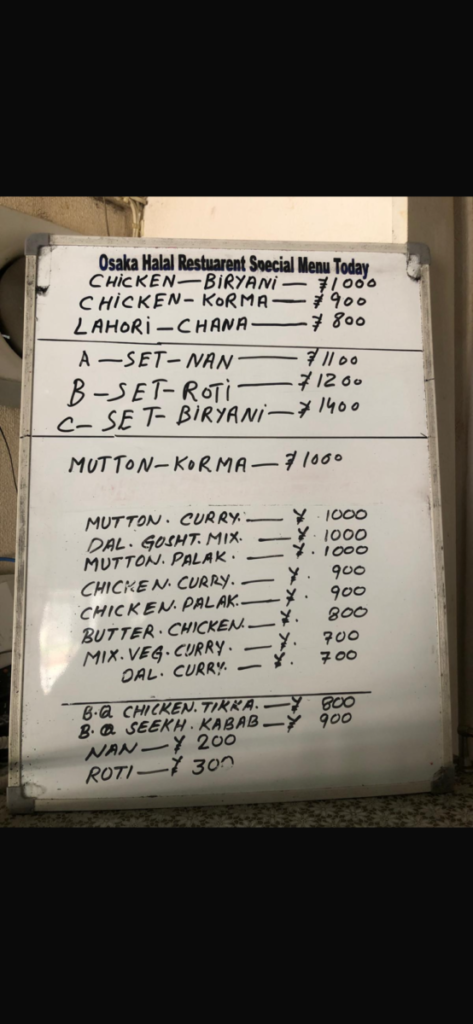 Osaka Halal Restuarent Special Menu Today
CHICKEN — BIRYANI — ¥1000
CHICKEN - KORMA — ¥900
LAHORI — CHANA — ¥800
A — SET - NAN — ¥1100
B - SET - ROTI — ¥1200
C - SET - BIRYANI — ¥1400
MUTTON - KORMA — ¥1000
MUTTON. CURRY. — ¥. 1000
DAL. GOSHT. MIX. — ¥. 1000
MUTTON. PALAK. — ¥. 1000
CHICKEN. CURRY. — ¥. 900
CHICKEN. PALAK. — ¥. 900
BUTTER. CHICKEN. — ¥. 800
MIX. VEG. CURRY. — ¥. 700
DAL. CURRY. — ¥. 700
B.Q CHICKEN. TIKKA. — ¥ 800
B.Q SEEKH. KABAB — ¥ 900
NAN — ¥ 200
ROTI — ¥ 300